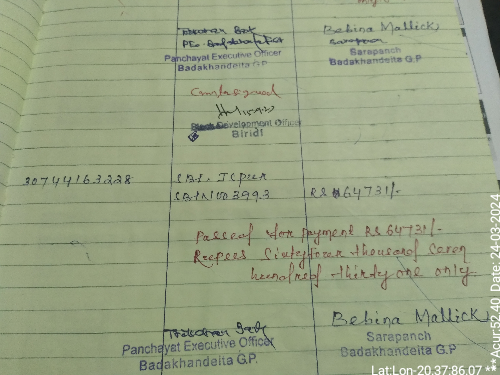 Panchayat Executive Officer
Badakhandeita G.P.
Bebina Mallick
Sarapanch
Badakhandeita G.P
Block Development Officer
Biridi
30744163228
SBI, JSpur
SBIN1003993
RS 64731/-
Passed for payment RS 64731/-
Rupees Sixtyfour thousand Seven
hundred thirty one only
Panchayat Executive Officer
Badakhandeita G.P.
Bebina Mallick
Sarapanch
Badakhandeita G.P.
Lat:Lon-20.37:86.07 **Acur:52.40 Date: 24-03-2024